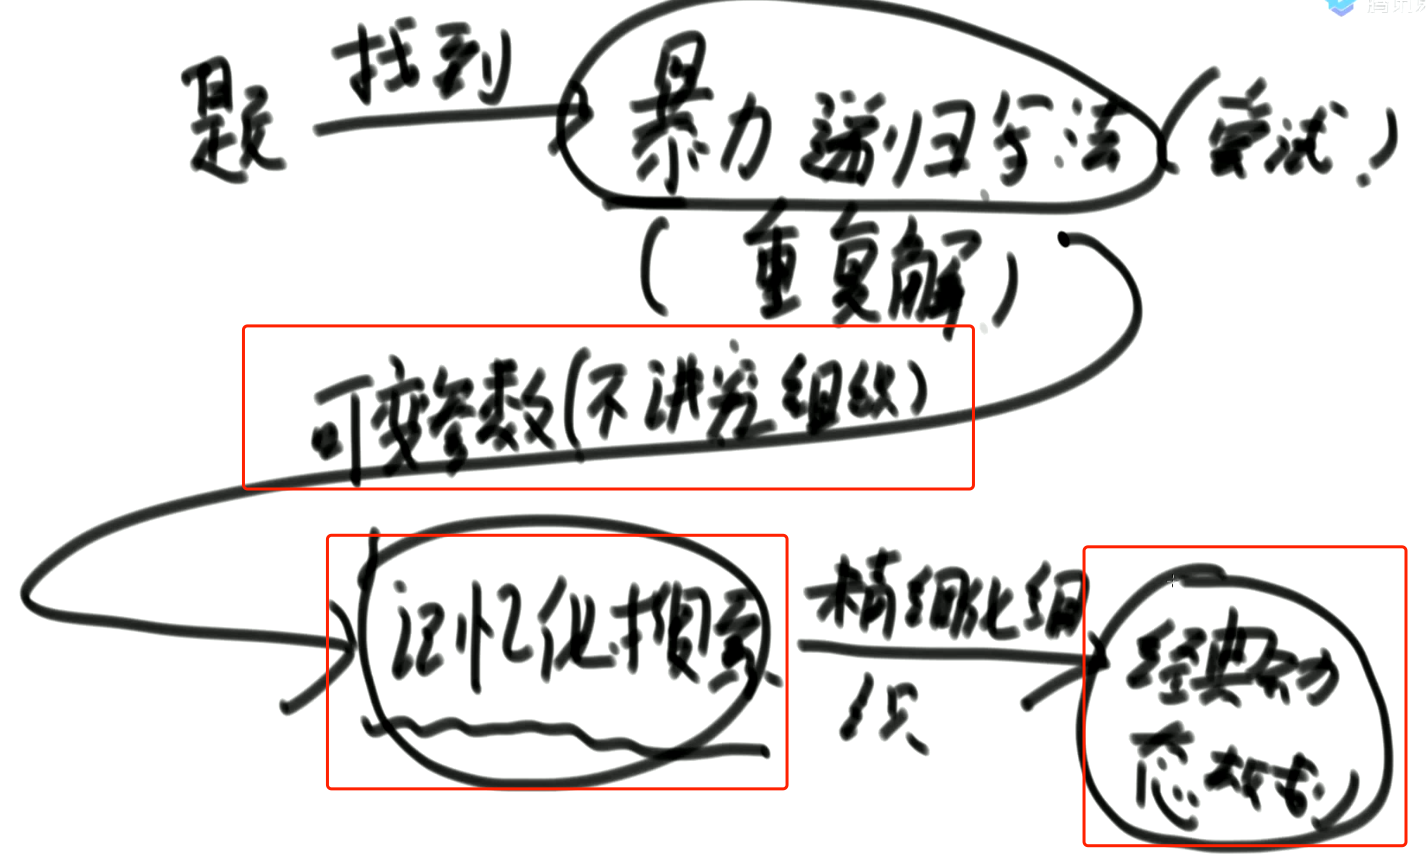 题 找到 暴力递归写法 (尝试)
(重复解)
可变参数(不讲究组织)
记忆化搜索 精细化组
织
经典动
态规划